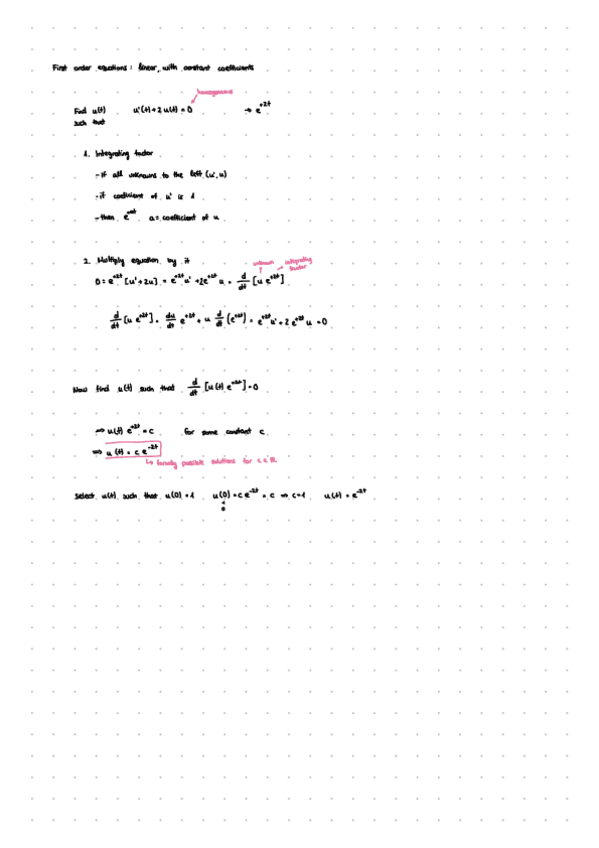 First order equations: linear, with constant coefficients
homogeneous
Find u(t) u'(t)+2 u(t) = 0 → e^{+2t}
such that
1. Integrating factor
- if all unknowns to the left (u', u)
- if coefficient of u' is 1
- then e^{+at} a = coefficient of u
2. Multiply equation by it
unknown integrating factor
0 = e^{+2t} [u'+2u] = e^{+2t} u' + 2e^{+2t} u = d/dt [u e^{+2t}]
d/dt [u e^{+2t}] = du/dt e^{+2t} + u d/dt (e^{+2t}) = e^{+2t} u' + 2 e^{+2t} u = 0
Now find u(t) such that d/dt [u(t) e^{+2t}] = 0
⇒ u(t) e^{+2t} = c for some constant c
⇒ u(t) = c e^{-2t}
↳ possible solutions for c ∈ ℝ
Select u(t) such that u(0) = 1 u(0) = c e^{-2t} = c ⇒ c=1 u(t) = e^{-2t}
0